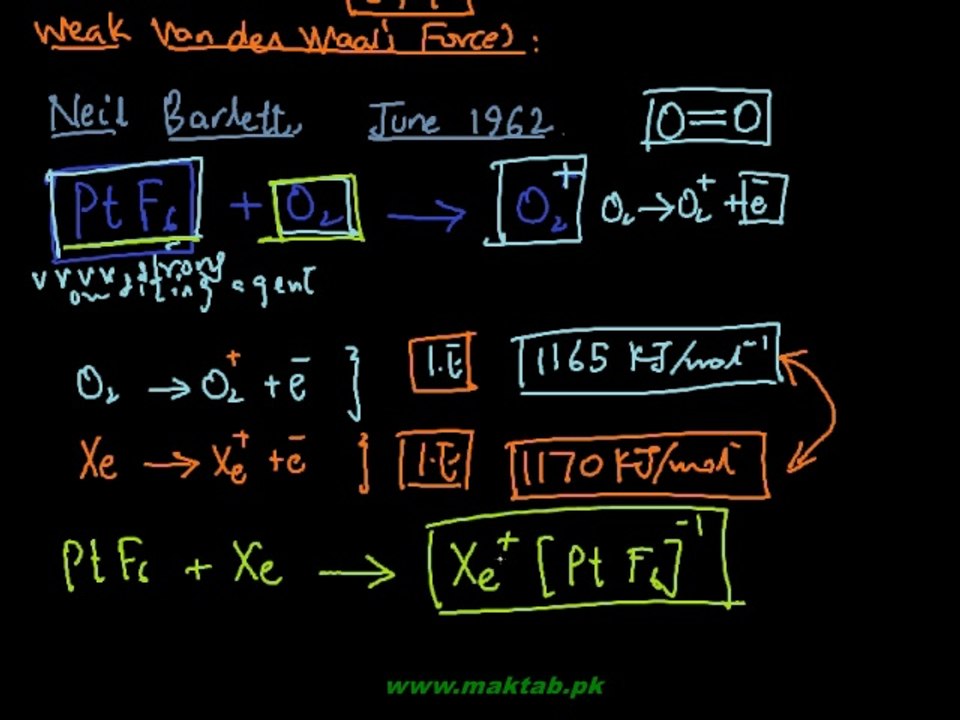 Weak Van der Waal's Forces :
Neil Barlett, June 1962. O=O
PtF₆ + O₂ → O₂⁺ O₂ → O₂⁺ + e⁻
v v v v strong
oxiditing agent
O₂ → O₂⁺ + e⁻ } I.E 1165 KJ/mol⁻¹
Xe → Xe⁺ + e⁻ } I.E 1170 KJ/mol⁻
PtF₆ + Xe → Xe⁺ [PtF₆]⁻¹
www.maktab.pk